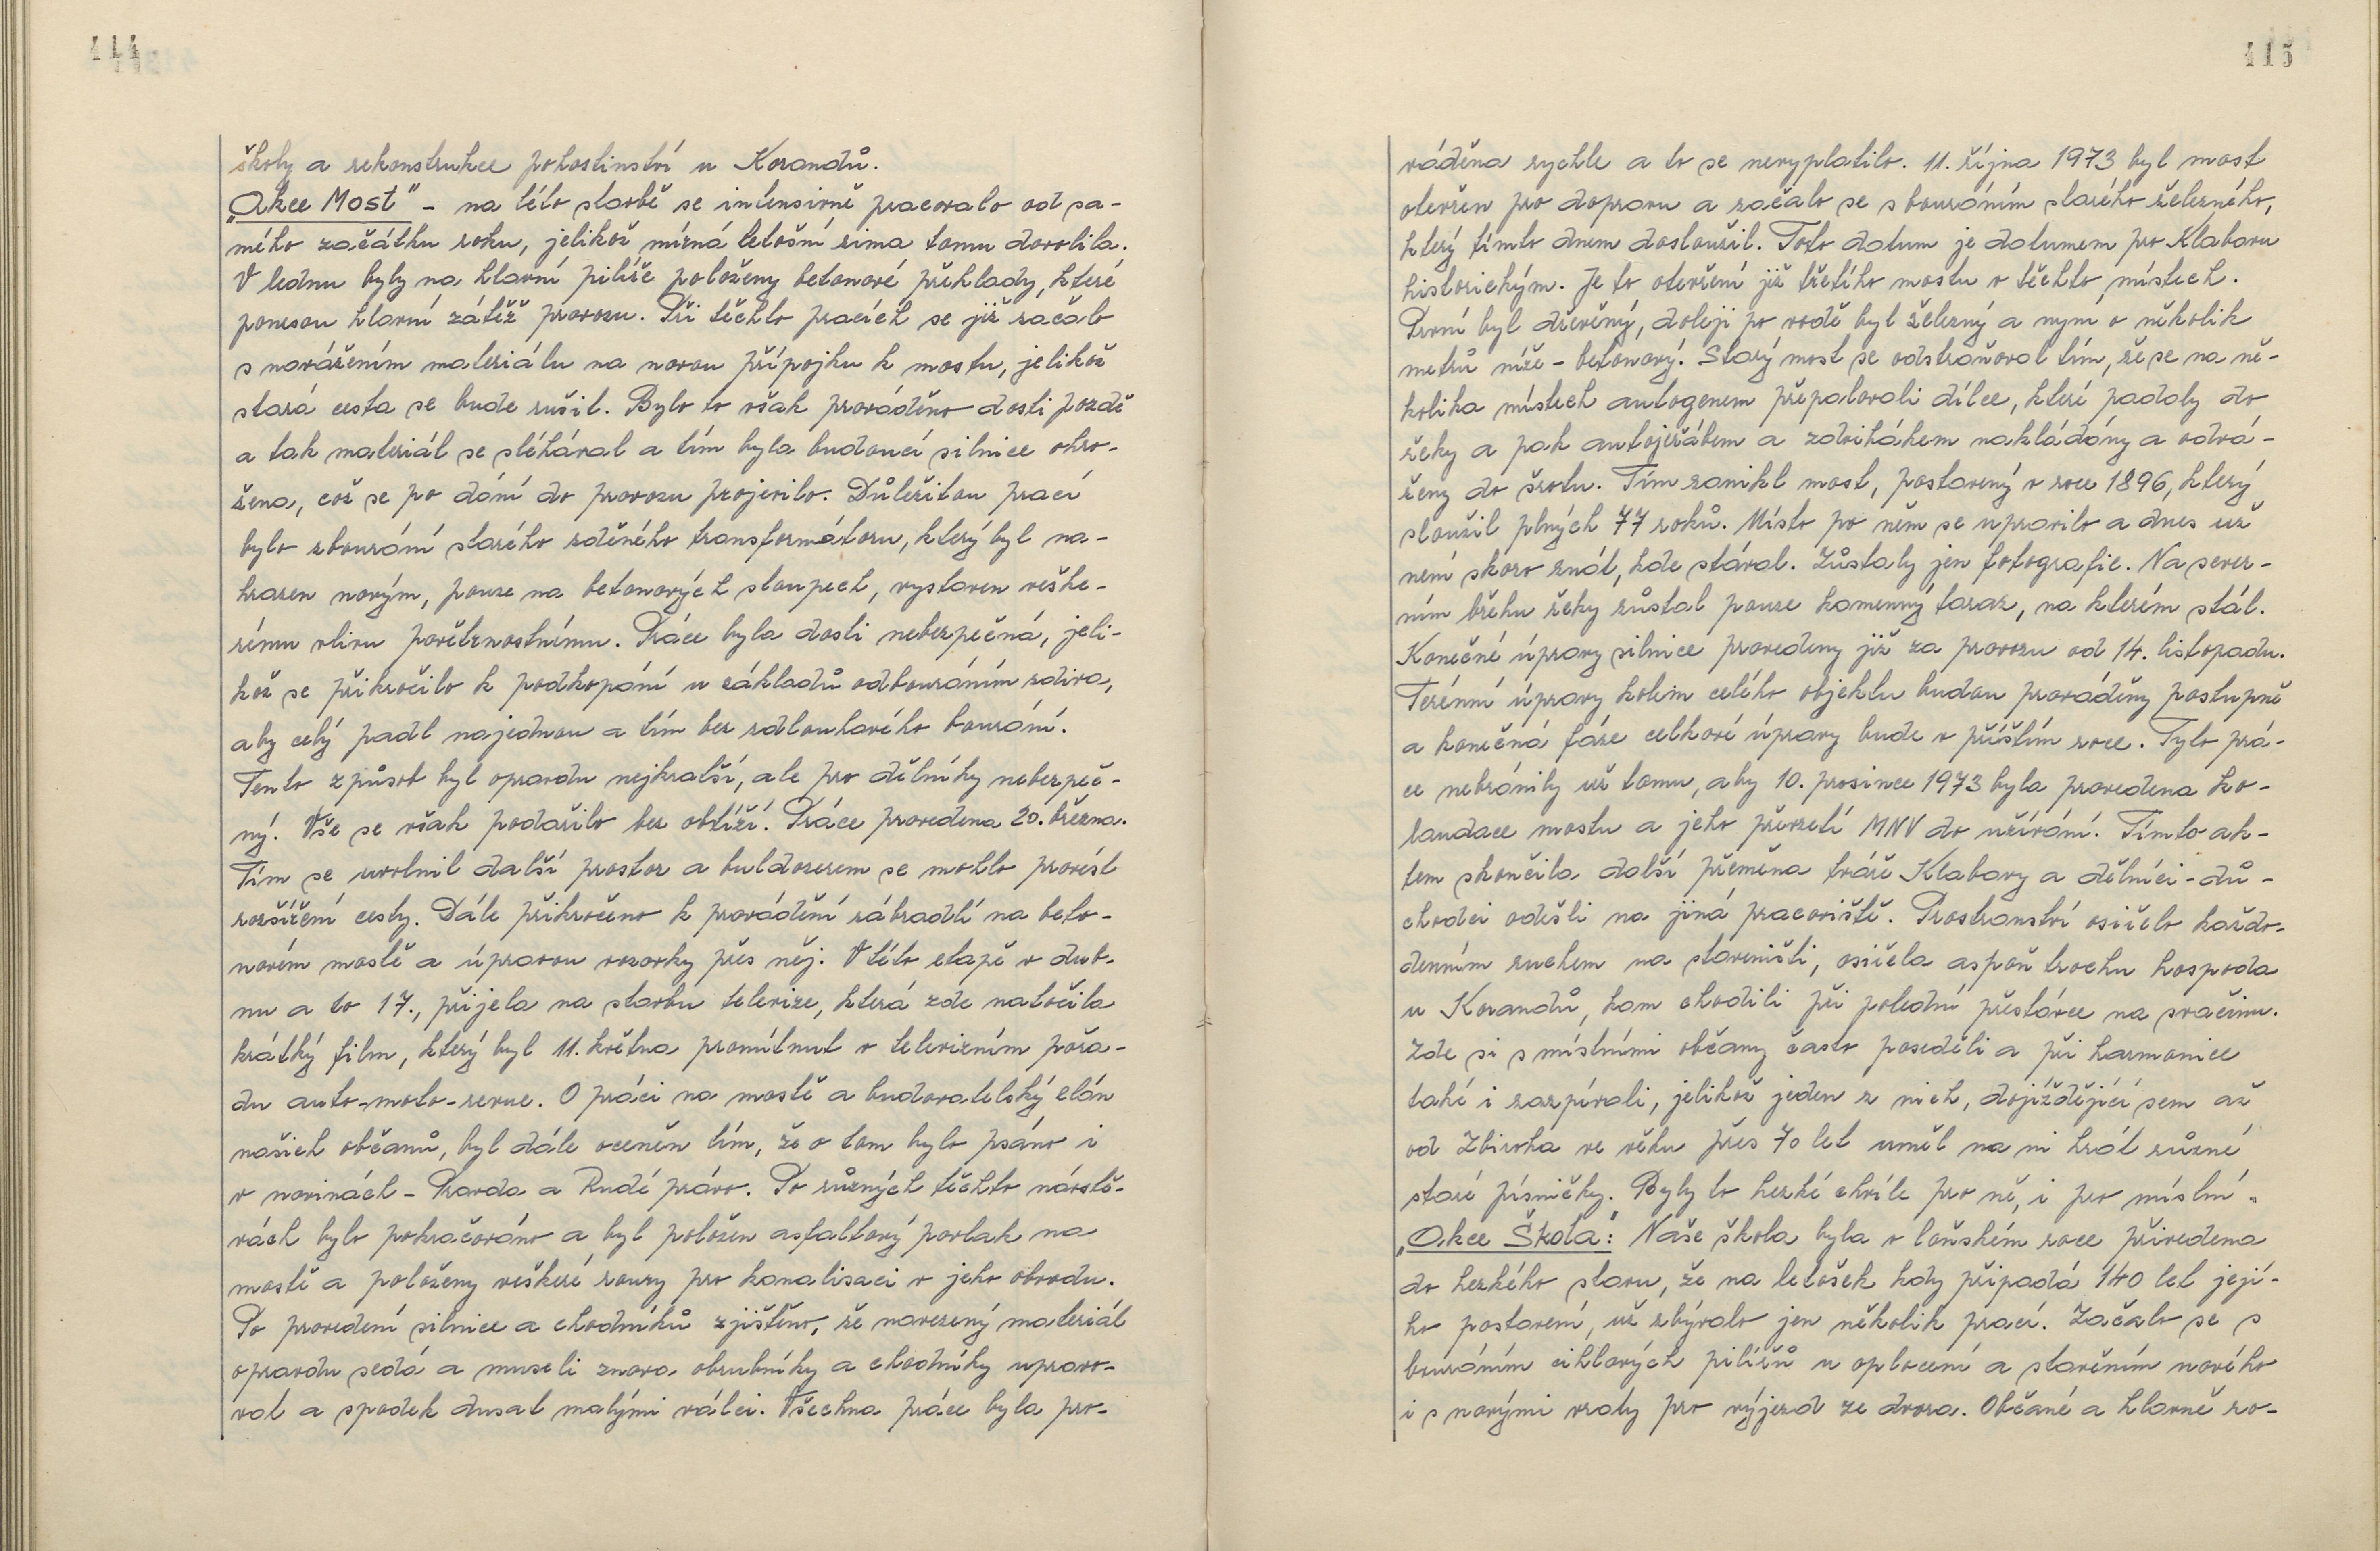 414
školy a rekonstrukce pohostinství u Korandů.
„Akce Most" - na této stavbě se intensivně pracovalo od sa-
mého začátku roku, jelikož mírná letošní zima tomu dovolila.
V lednu byly na hlavní pilíře položeny betonové překlady, které
ponesou hlavní zátěž provozu. Při těchto pracích se již začalo
s navážením materiálu na novou přípojku k mostu, jelikož
stará cesta se bude rušit. Bylo to však prováděno dosti pozdě
a tak materiál se sléhával a tím byla budoucí silnice ohro-
žena, což se po dání do provozu projevilo. Důležitou prací
bylo zbourání starého zděného transformátoru, který byl na-
hrazen novým, pouze na betonových sloupech, vystaven veške-
rému vlivu povětrnostnímu. Práce byla dosti nebezpečná, jeli-
kož se přikročilo k podkopání u základů odbouráním zdiva,
aby celý padl najednou a tím bez zdlouhavého bourání.
Tento způsob byl opravdu nejkratší, ale pro dělníky nebezpeč-
ný. Vše se však podařilo bez obtíží. Práce provedena 20. března.
Tím se uvolnil další prostor a buldozerem se mohlo provést
rozšíření cesty. Dále přikročeno k provádění zábradlí na beto-
novém mostě a úpravou vozovky přes něj. V této etapě v dub-
nu a to 17., přijela na stavbu televize, která zde natočila
krátký film, který byl 11. května promítnut v televizním pořa-
du auto-moto-revue. O práci na mostě a budovatelský elán
našich občanů, byl dále oceněn tím, že o tom bylo psáno i
v novinách - Pravda a Rudé právo. Po různých těchto návště-
vách bylo pokračováno a byl položen asfaltový povlak na
mostě a položeny veškeré roury pro kanalisaci v jeho obvodu.
Po provedení silnice a chodníků zjištěno, že navezený materiál
opravdu sedá a museli znova obrubníky a chodníky upravo-
vat a spodek dusat malými válci. Všechna práce byla pro-
415
váděna rychle a to se nevyplatilo. 11. října 1973 byl most
otevřen pro dopravu a začalo se s bouráním starého železného,
který tímto dnem dosloužil. Toto datum je datumem pro Klabavu
historickým. Je to otevření již třetího mostu v těchto místech.
První byl dřevěný, doleji po vodě byl železný a nyní o několik
metrů níže - betonový. Starý most se odstraňoval tím, že se na ně-
kolika místech autogenem přepalovali dílce, které padaly do
řeky a pak autojeřábem a zdvihákem nakládány a odvá-
ženy do šrotu. Tím zanikl most, postavený v roce 1896, který
sloužil plných 77 roků. Místo po něm se upravilo a dnes už
není skoro znát, kde stával. Zůstaly jen fotografie. Na sever-
ním břehu řeky zůstal pouze kamenný taraz, na kterém stál.
Konečné úpravy silnice provedeny již za provozu od 14. listopadu.
Terénní úpravy kolem celého objektu budou prováděny postupně
a konečná fáze celkové úpravy bude v příštím roce. Tyto prá-
ce nebránily už tomu, aby 10. prosince 1973 byla provedena ko-
laudace mostu a jeho převzetí MNV do užívání. Tímto ak-
tem skončila další přeměna tváře Klabavy a dělníci - dů-
chodci odešli na jiná pracoviště. Prostranství osiřelo každo-
denním ruchem na staveništi, osiřela aspoň trochu hospoda
u Korandů, kam chodili při polední přestávce na svačinu.
Zde si s místními občany často poseděli a při harmonice
také i zazpívali, jelikož jeden z nich, dojíždějící sem až
od Zbiroha ve věku přes 70 let uměl na ni hrát různé
staré písničky. Byly to hezké chvíle pro ně, i pro místní.
„Akce Škola": Naše škola byla v loňském roce přivedena
do hezkého stavu, že na letošek kdy připadá 140 let její-
ho postavení, už zbývalo jen několik prací. Začalo se s
bouráním cihlových pilířů u oplocení a stavěním nového
i s novými vraty pro výjezd ze dvora. Občané a hlavně ro-